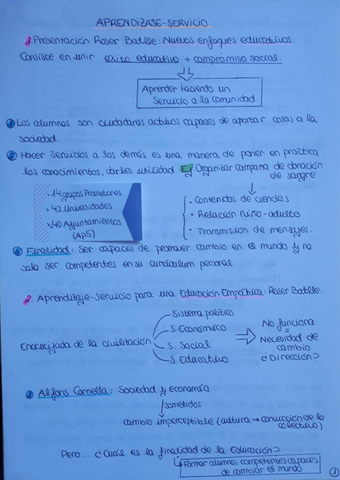 APRENDIZAJE-SERVICIO
1. Presentación Roser Batlle: Nuevos enfoques educativos.
Consiste en unir éxito educativo + compromiso social.
Aprender haciendo un
Servicio a la comunidad
Los alumnos son ciudadanos activos capaces de aportar cosas a la
sociedad.
Hacer Servicios a los demás es una manera de poner en práctica
los conocimientos, darles utilidad. Ej Organizar campaña de donación
de sangre
· 14 grupos Promotores
· 42 Universidades
· >40 Ayuntamientos
(ApS)
· Contenidos de ciencias
· Relación niño-adulto
· Transmisión de mensajes.
Finalidad: Ser capaces de promover cambio en el mundo y no
solo ser competentes en su currículum personal.
2. Aprendizaje-Servicio para una Educación Empática: Roser Batlle.
Encrucijada de la civilización
Sistema político
S. Económico
S. Social
S. Educativo
No funciona
Necesidad de
cambio
¿Dirección?
Alfons Cornella: Sociedad y economía
sometidos
cambio imperceptible (cultura → conducción de lo
colectivo)
Pero... ¿Cuál es la finalidad de la Educación?
Formar alumnos competentes capaces
de cambiar el mundo
1